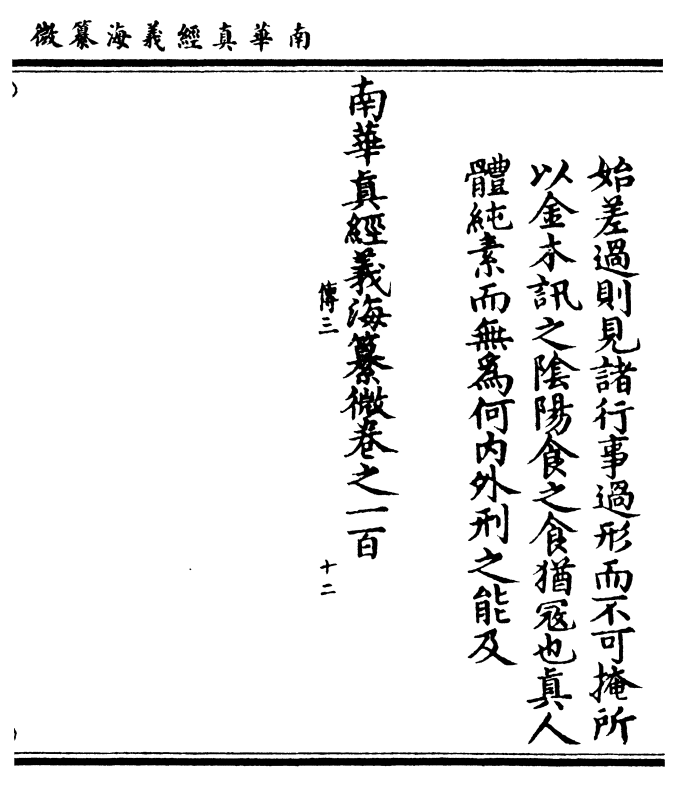 南華真經義海纂微
始差過則見諸行事過形而不可掩所
以金木訊之陰陽食之食猶寇也真人
體純素而無爲何内外刑之能及
南華真經義海纂微卷之一百
傳三
十二